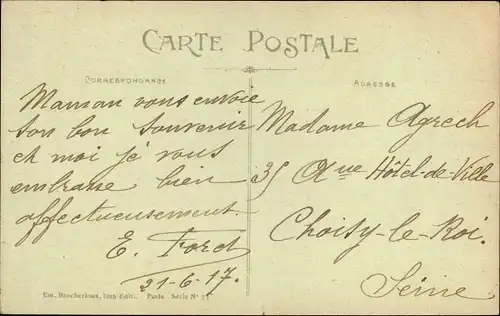 CARTE POSTALE
CORRESPONDANCE
ADRESSE
Maman vous envoie
son bon souvenir
et moi je vous
embrasse bien
affectueusement.
E. Ford
21-6-17.
Madame Agrech
35 Aue Hôtel-de-Ville
Choisy-le-Roi.
Seine.
Imp. Edit., Paris Serie No